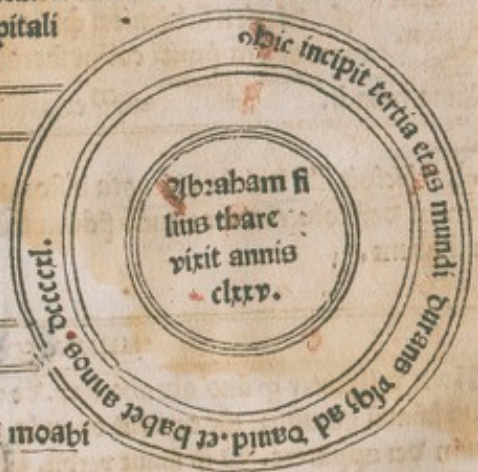 pitali
Hic incipit tertia etas mundi durans vsqȝ ad dauid. et habet annos. dccccxl.
Abraham fi
lius thare
vixit annis
clxxv.
moabi